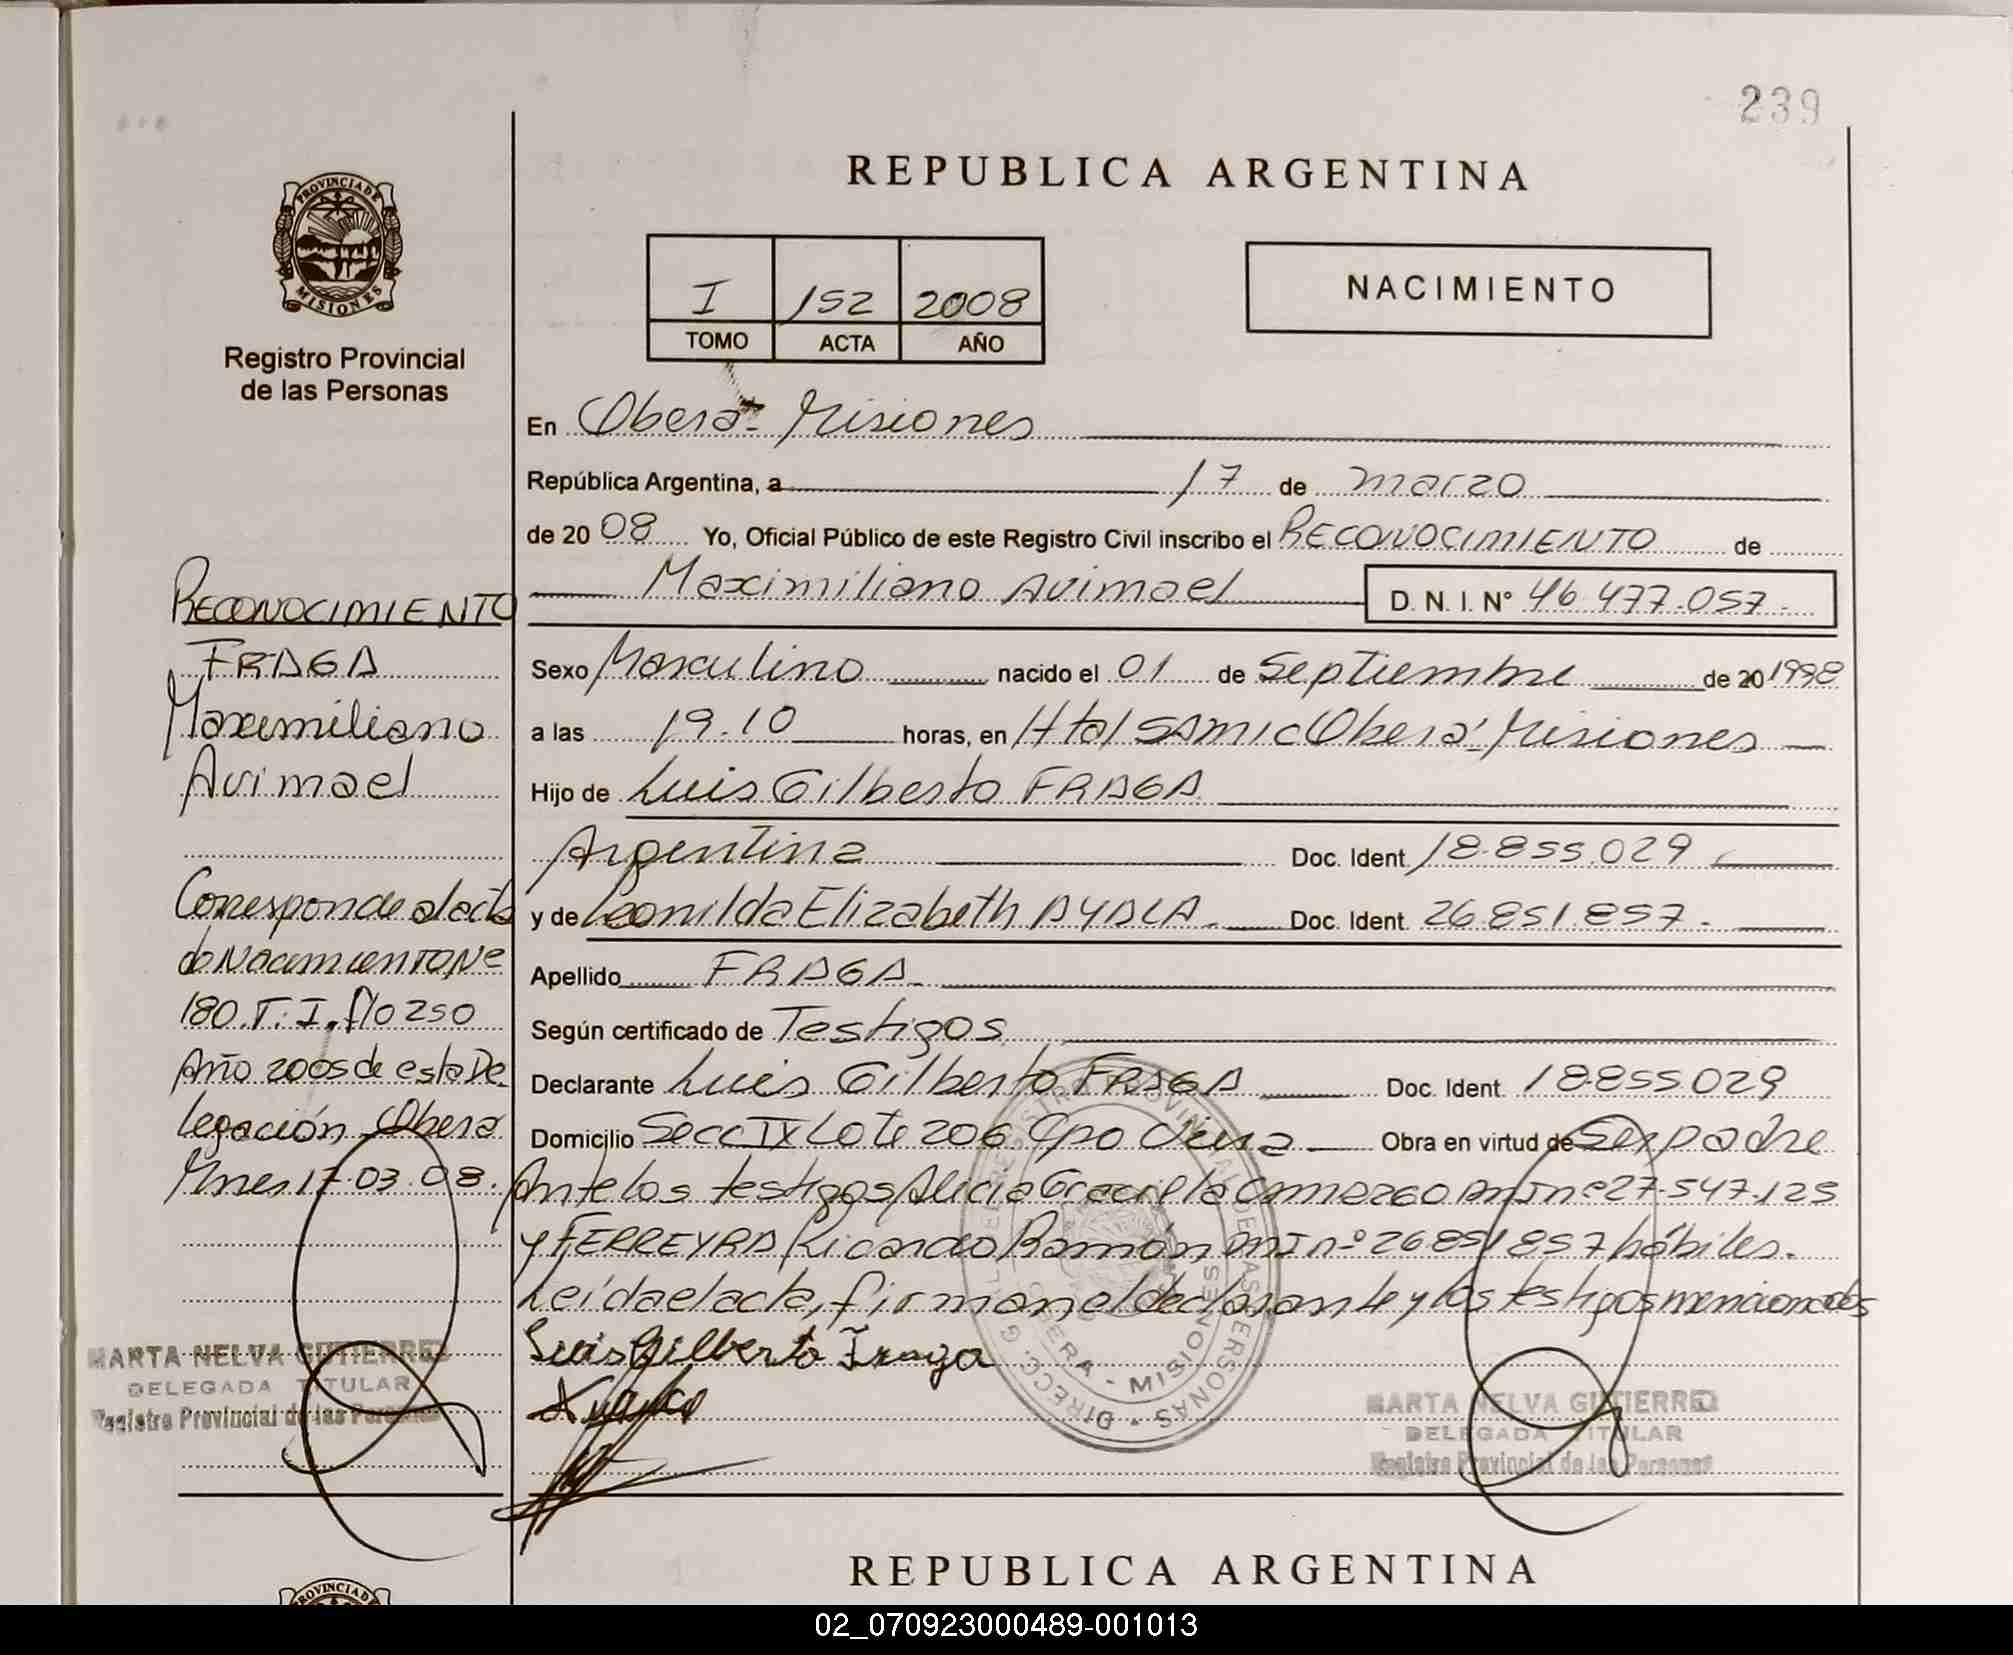 239
REPUBLICA ARGENTINA
PROVINCIA DE
MISIONES
Registro Provincial
de las Personas
I 152 2008
TOMO ACTA AÑO
NACIMIENTO
En Oberá - Misiones
República Argentina, a 17 de marzo
de 20 08 Yo, Oficial Público de este Registro Civil inscribo el RECONOCIMIENTO de
Maximiliano Avimael D.N.I. N° 46.477.057.
Sexo Masculino nacido el 01 de Septiembre de 20 1998
a las 19.10 horas, en Htal SAMIC Oberá - Misiones
Hijo de Luis Gilberto FRAGA
Argentina Doc. Ident. 18.855.029
y de Leonilda Elizabeth AYALA. Doc. Ident. 26.851.857.
Apellido FRAGA.
Según certificado de Testigos
Declarante Luis Gilberto FRAGA Doc. Ident. 18.855.029
Domicilio Secc IX Lote 206 Cpo Viera Obra en virtud de Ser padre
Ante los testigos Alicia Graciela DNI nº 27.547.125
y FERREYRA Ricardo Ramón, DNI nº 26851857 hábiles.
Leída el acta, firman el declarante y los testigos mencionados
Luis Gilberto Fraga
RECONOCIMIENTO
FRAGA
Maximiliano
Avimael
Corresponde al acta
de Nacimiento Nº
180. T. I. flo 250
Año 2005 de esta De
legación Oberá
Mnes 17.03.08.
MARTA NELVA GUTIERREZ
DELEGADA TITULAR
Registro Provincial de las Personas
MARTA NELVA GUTIERREZ
DELEGADA TITULAR
Registro Provincial de las Personas
OBERA - MISIONES
REPUBLICA ARGENTINA
PROVINCIA DE
02_070923000489-001013